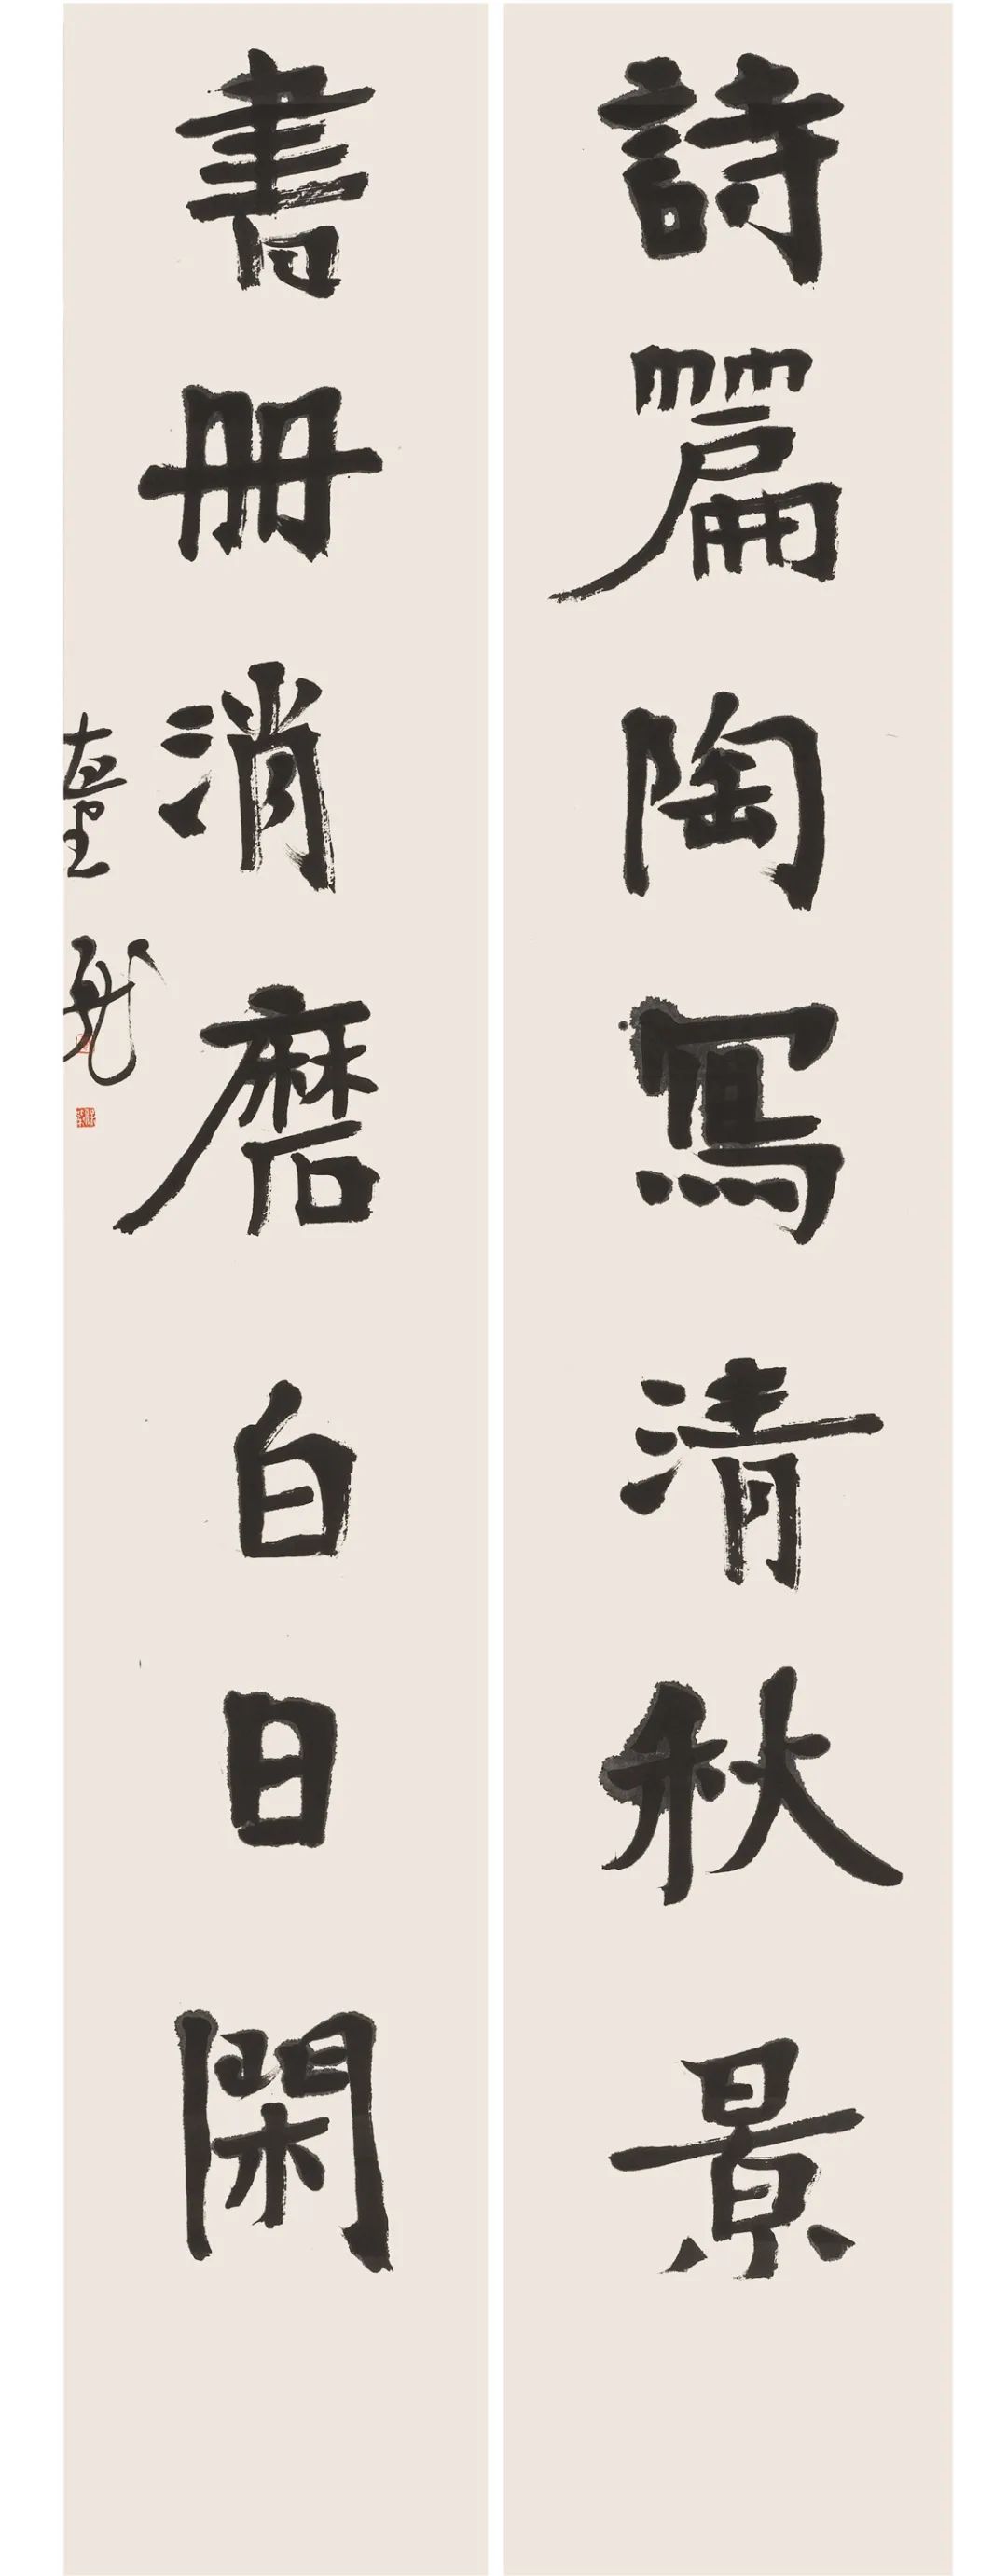 詩篇陶寫清秋景
書冊消磨白日閑